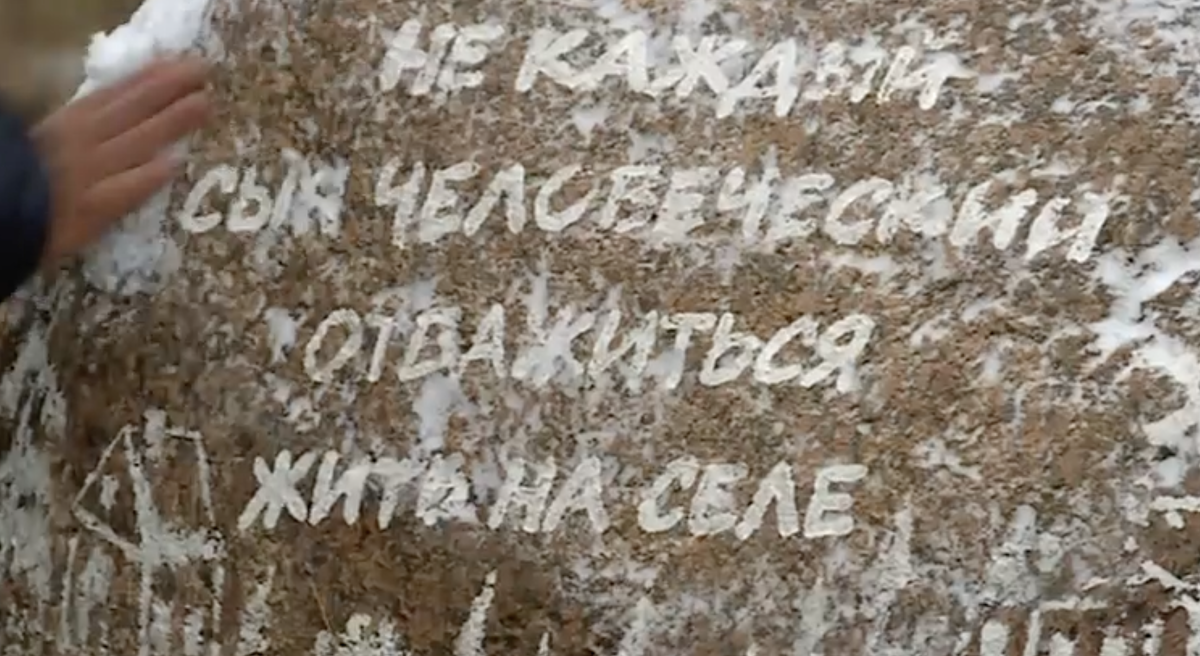 НЕ КАЖДЫЙ
СЫН ЧЕЛОВЕЧЕСКИЙ
ОТВАЖИТЬСЯ
ЖИТЬ НА СЕЛЕ